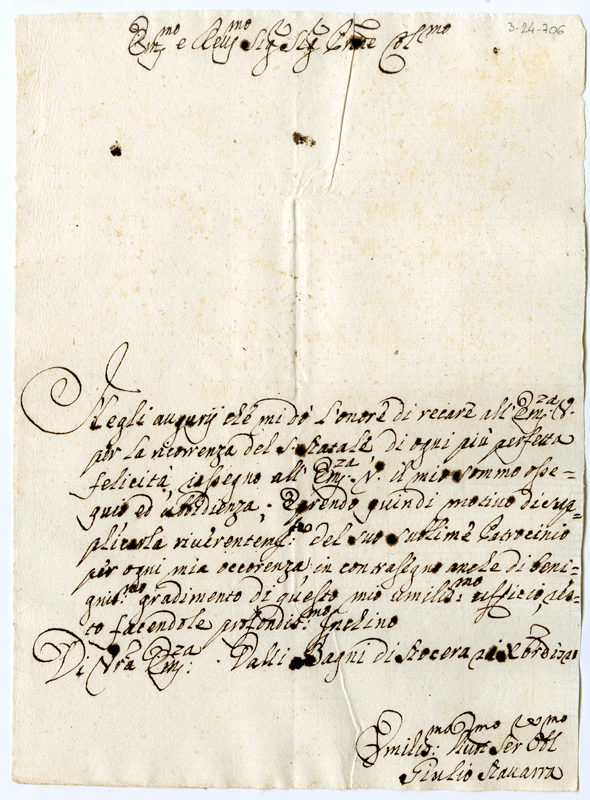 3-24-706
Em.mo e Reu.mo Sig.r Sig.r Prñe Col.mo
Negli augurij che mi dò l'onore di recare all' Em.za V.
per la ricorrenza del S. Natale di ogni più perfetta
felicità, rassegno all' Em.za V. il mio sommo osse-
quio ed ubbidienza; Prendo quindi motivo di sup-
plicarla riverentem.te del suo sublime Patrocinio
per ogni mia occorenza in contrasegno anche di beni-
gnis.mo gradimento di questo mio umilis.mo ufficio, e
to facendole profondis.mo Inchino
Di Vra Em.za Dalli Bagni di Nocera
Umilis.mo Ser Obl
Giulio Navarra